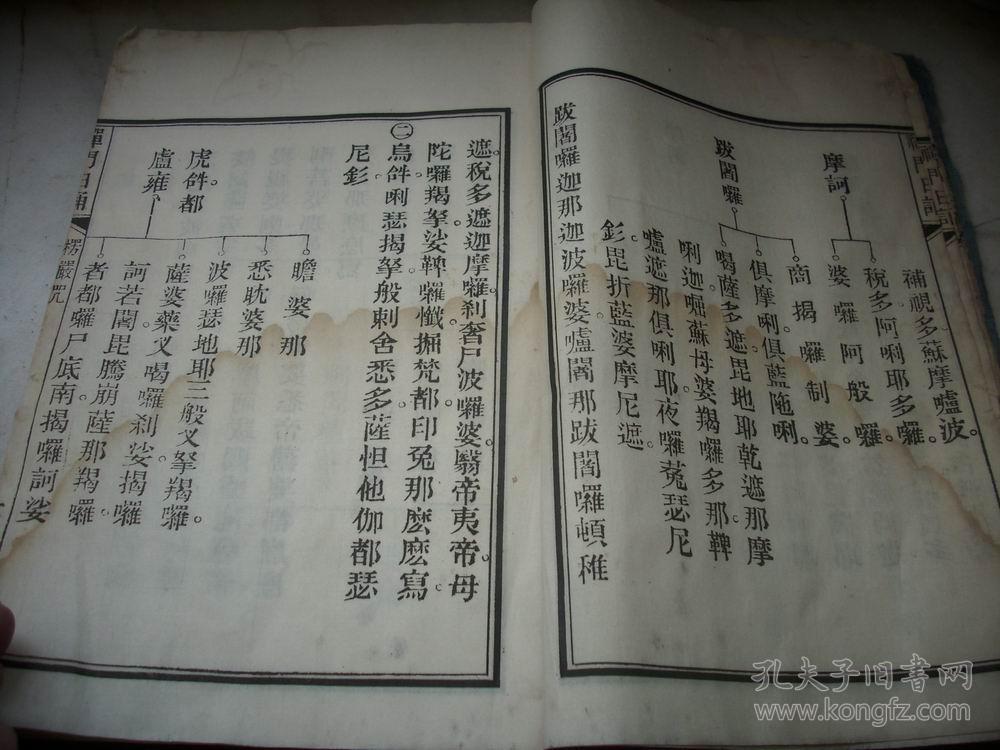 禪門日誦
補視多蘇摩嚧波。
摩訶
稅多阿唎耶多囉。
婆囉阿般囉。
跋闍囉
商揭囉制婆。
俱摩唎。俱藍陁唎。
喝薩多遮。毘地耶乾遮那摩
唎迦。啒蘇母婆羯囉多那。鞞
嚧遮那俱唎耶。夜囉菟瑟尼
釤。毘折藍婆摩尼遮。
跋闍囉迦那迦波囉婆。嚧闍那跋闍囉頓稚
遮。稅多遮迦摩囉。刹奢尸波囉婆。翳帝夷帝。母
陀囉羯拏。娑鞞囉懺。掘梵都。印兔那麽麽寫。
㊁烏𤙖。唎瑟揭拏。般剌舍悉多。薩怛他伽都瑟
尼釤。
虎𤙖都
盧雍。
瞻婆那
悉眈婆那
波囉瑟地耶三般叉拏羯囉。
薩婆藥叉喝囉刹娑。揭囉
訶若闍。毘騰崩薩那羯囉。
者都囉尸底南。揭囉訶娑
禪門日誦
楞嚴咒
孔夫子旧书网
www.kongfz.com